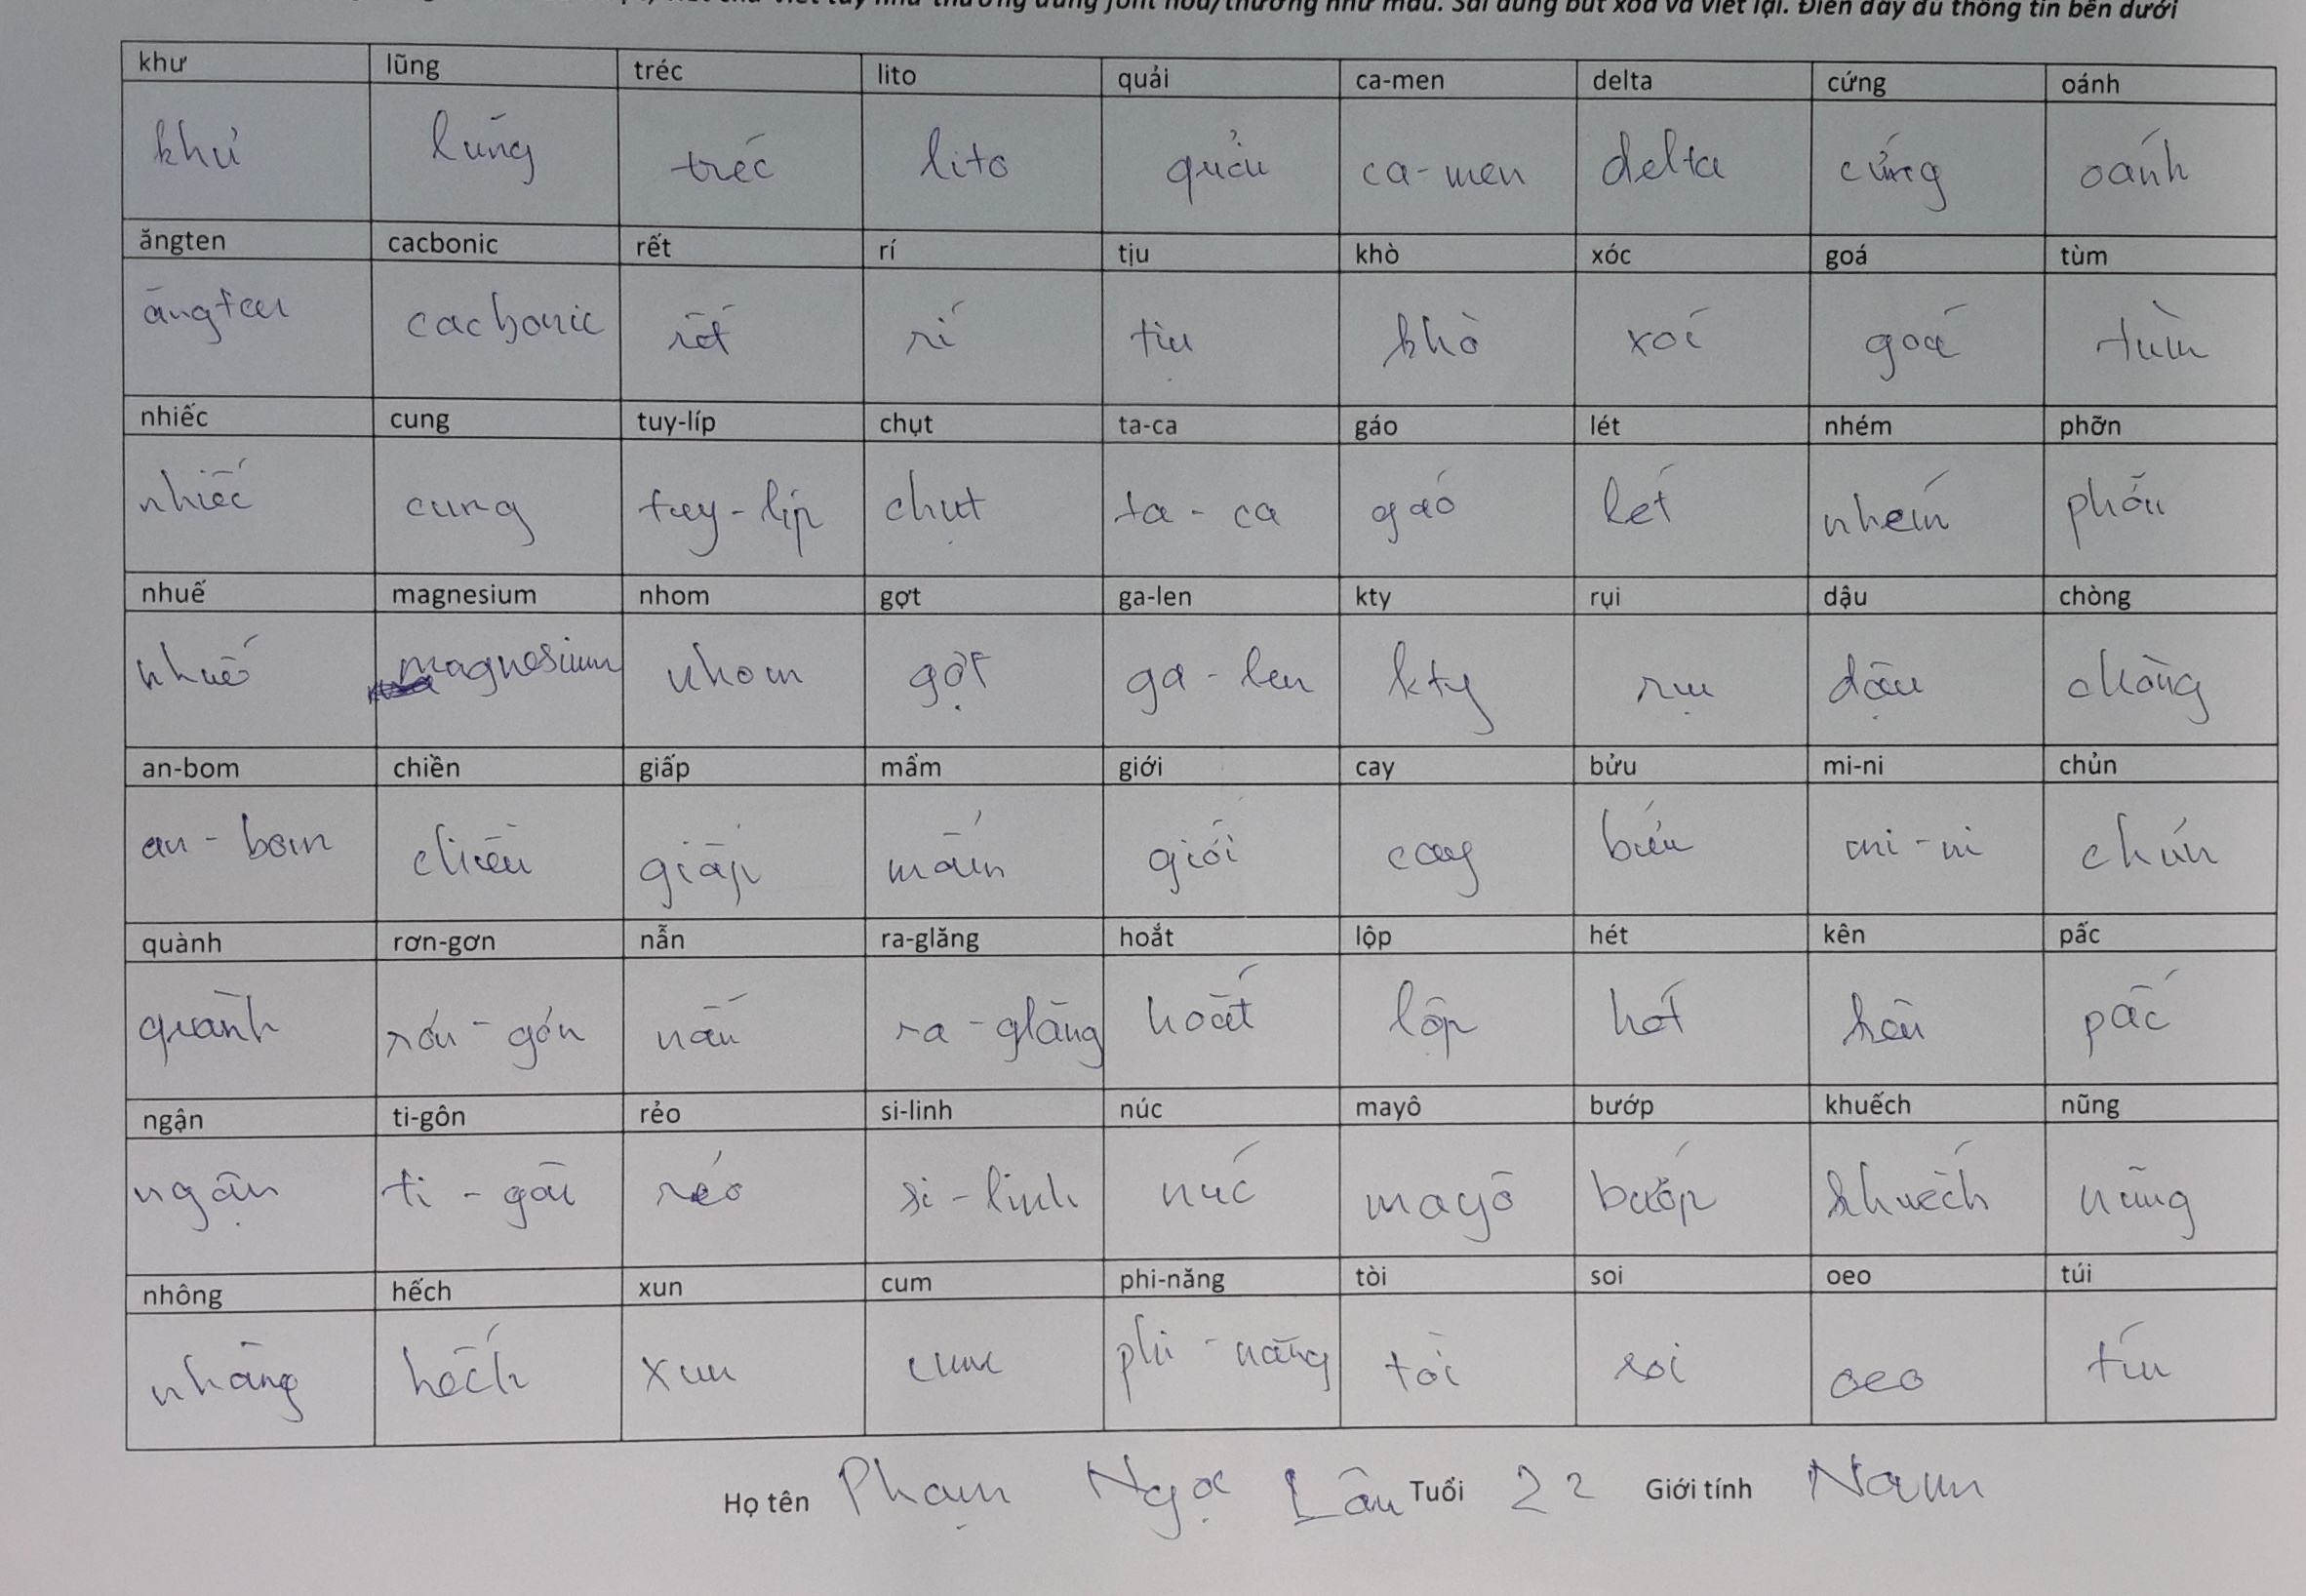 viết chữ viết tay như thường dùng font hoa/thường như mẫu. Sai dùng bút xoá và viết lại. Điền đầy đủ thông tin bên dưới
khư lũng tréc lito quải ca-men delta cứng oánh
khư lũng tréc lito quải ca-men delta cứng oánh
ăngten cacbonic rết rí tịu khò xóc goá tùm
ăngten cacbonic rết rí tịu khò xóc goá tùm
nhiếc cung tuy-líp chụt ta-ca gáo lét nhém phỡn
nhiếc cung tuy-líp chụt ta-ca gáo lét nhém phỡn
nhuế magnesium nhom gợt ga-len kty rụi dậu chòng
nhuế magnesium nhom gợt ga-len kty rụi dậu chòng
an-bom chiền giấp mẩm giới cay bửu mi-ni chủn
an-bom chiền giấp mẩm giới cay bửu mi-ni chủn
quành rơn-gơn nẫn ra-glăng hoắt lộp hét kên pấc
quành rơn-gơn nẫn ra-glăng hoắt lộp hét kên pấc
ngận ti-gôn rẻo si-linh núc mayô bướp khuếch nũng
ngận ti-gôn rẻo si-linh núc mayô bướp khuếch nũng
nhông hếch xun cum phi-năng tòi soi oeo túi
nhông hếch xun cum phi-năng tòi soi oeo túi
Họ tên Phạm Ngọc Lân Tuổi 22 Giới tính Nam